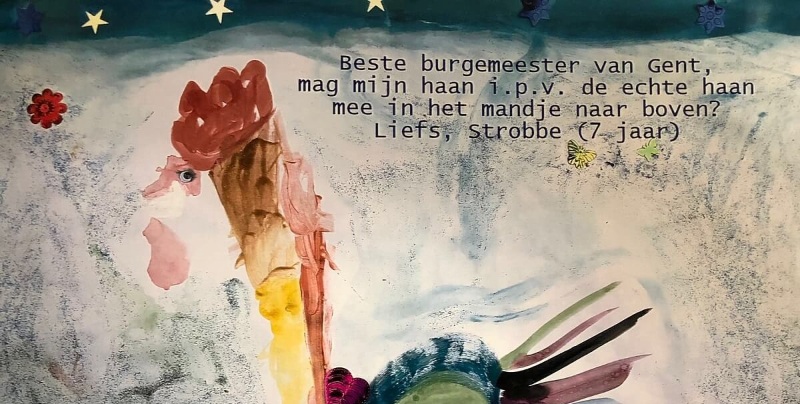 Beste burgemeester van Gent,
mag mijn haan i.p.v. de echte haan
mee in het mandje naar boven?
Liefs, Strobbe (7 jaar)